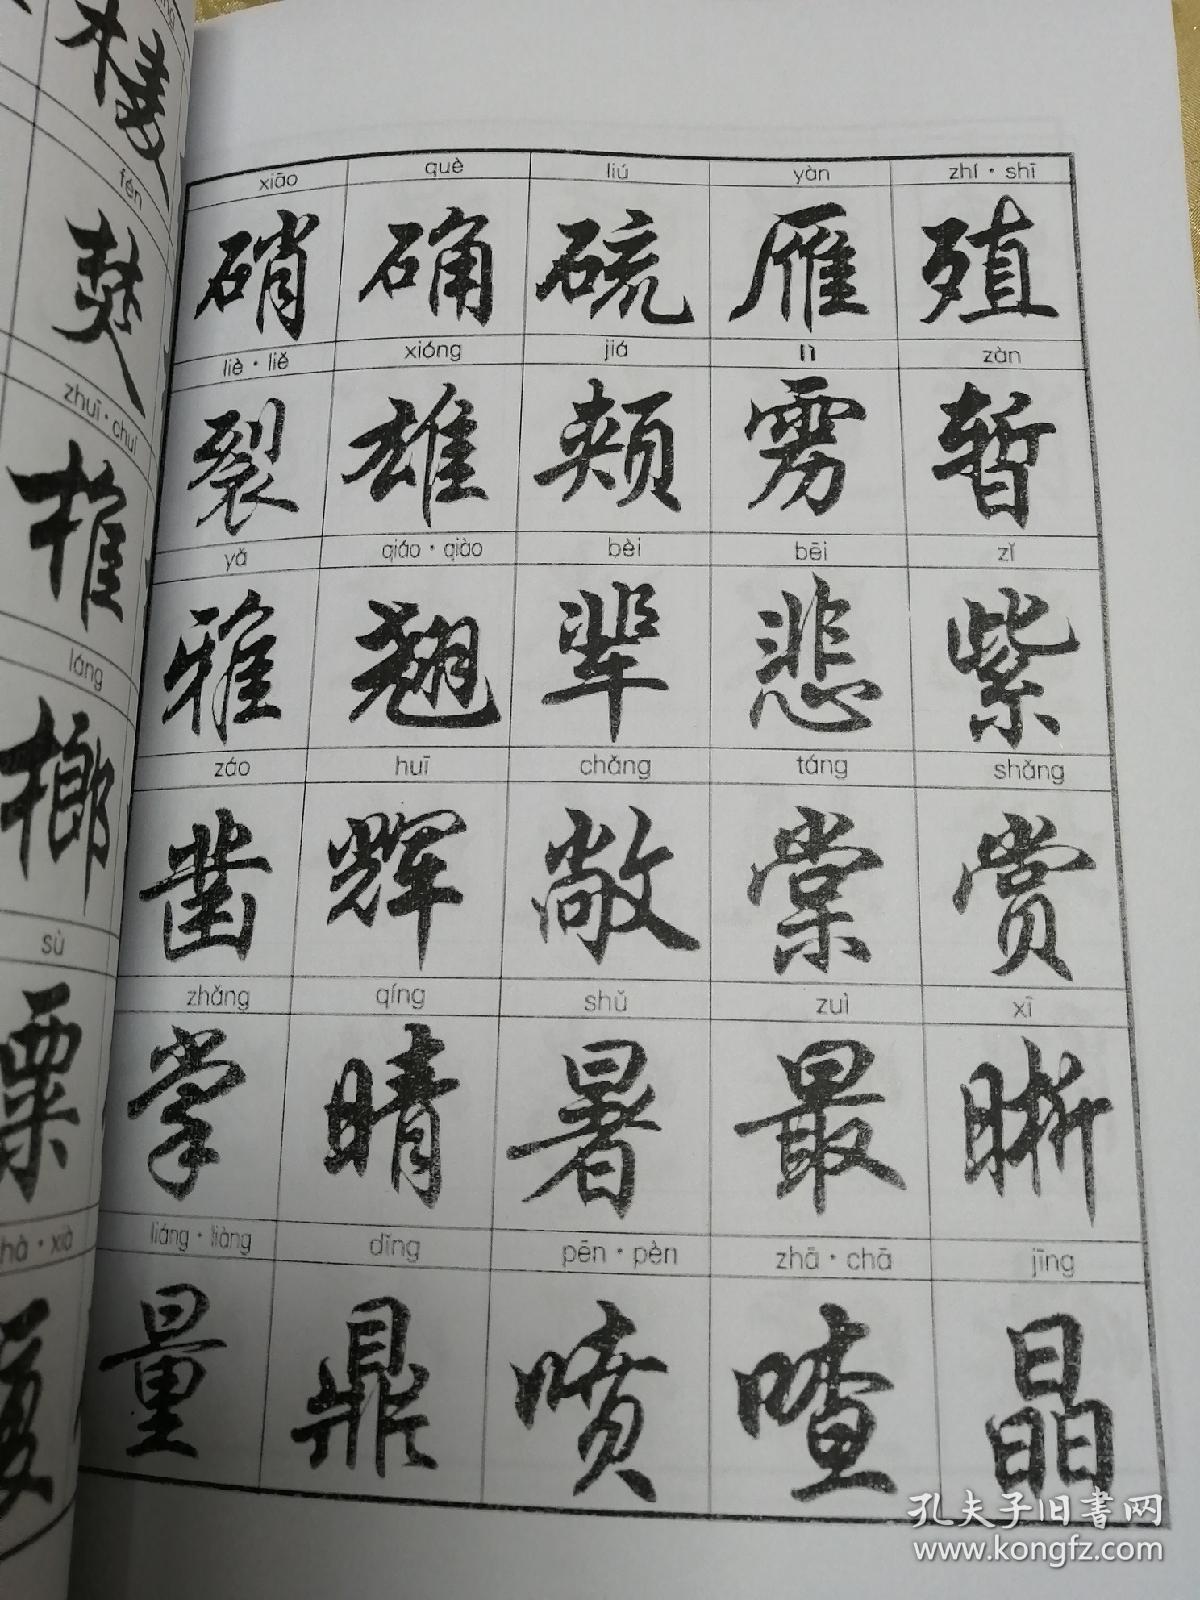 fén
zhuī·chuí
láng
榔
sù
粟
xiāo què liú yàn zhí·shi
硝 确 硫 雁 殖
liè·liě xióng jiá lì zàn
裂 雄 颊 雳 暂
yǎ qiáo·qiào bèi bēi zǐ
雅 翘 辈 悲 紫
záo huī chǎng táng shǎng
凿 辉 敞 棠 赏
zhǎng qíng shǔ zuì xī
掌 晴 暑 最 晰
liáng·liàng dǐng pēn·pèn zhā·chā jīng
量 鼎 喷 喳 晶
孔夫子旧书网
www.kongfz.com